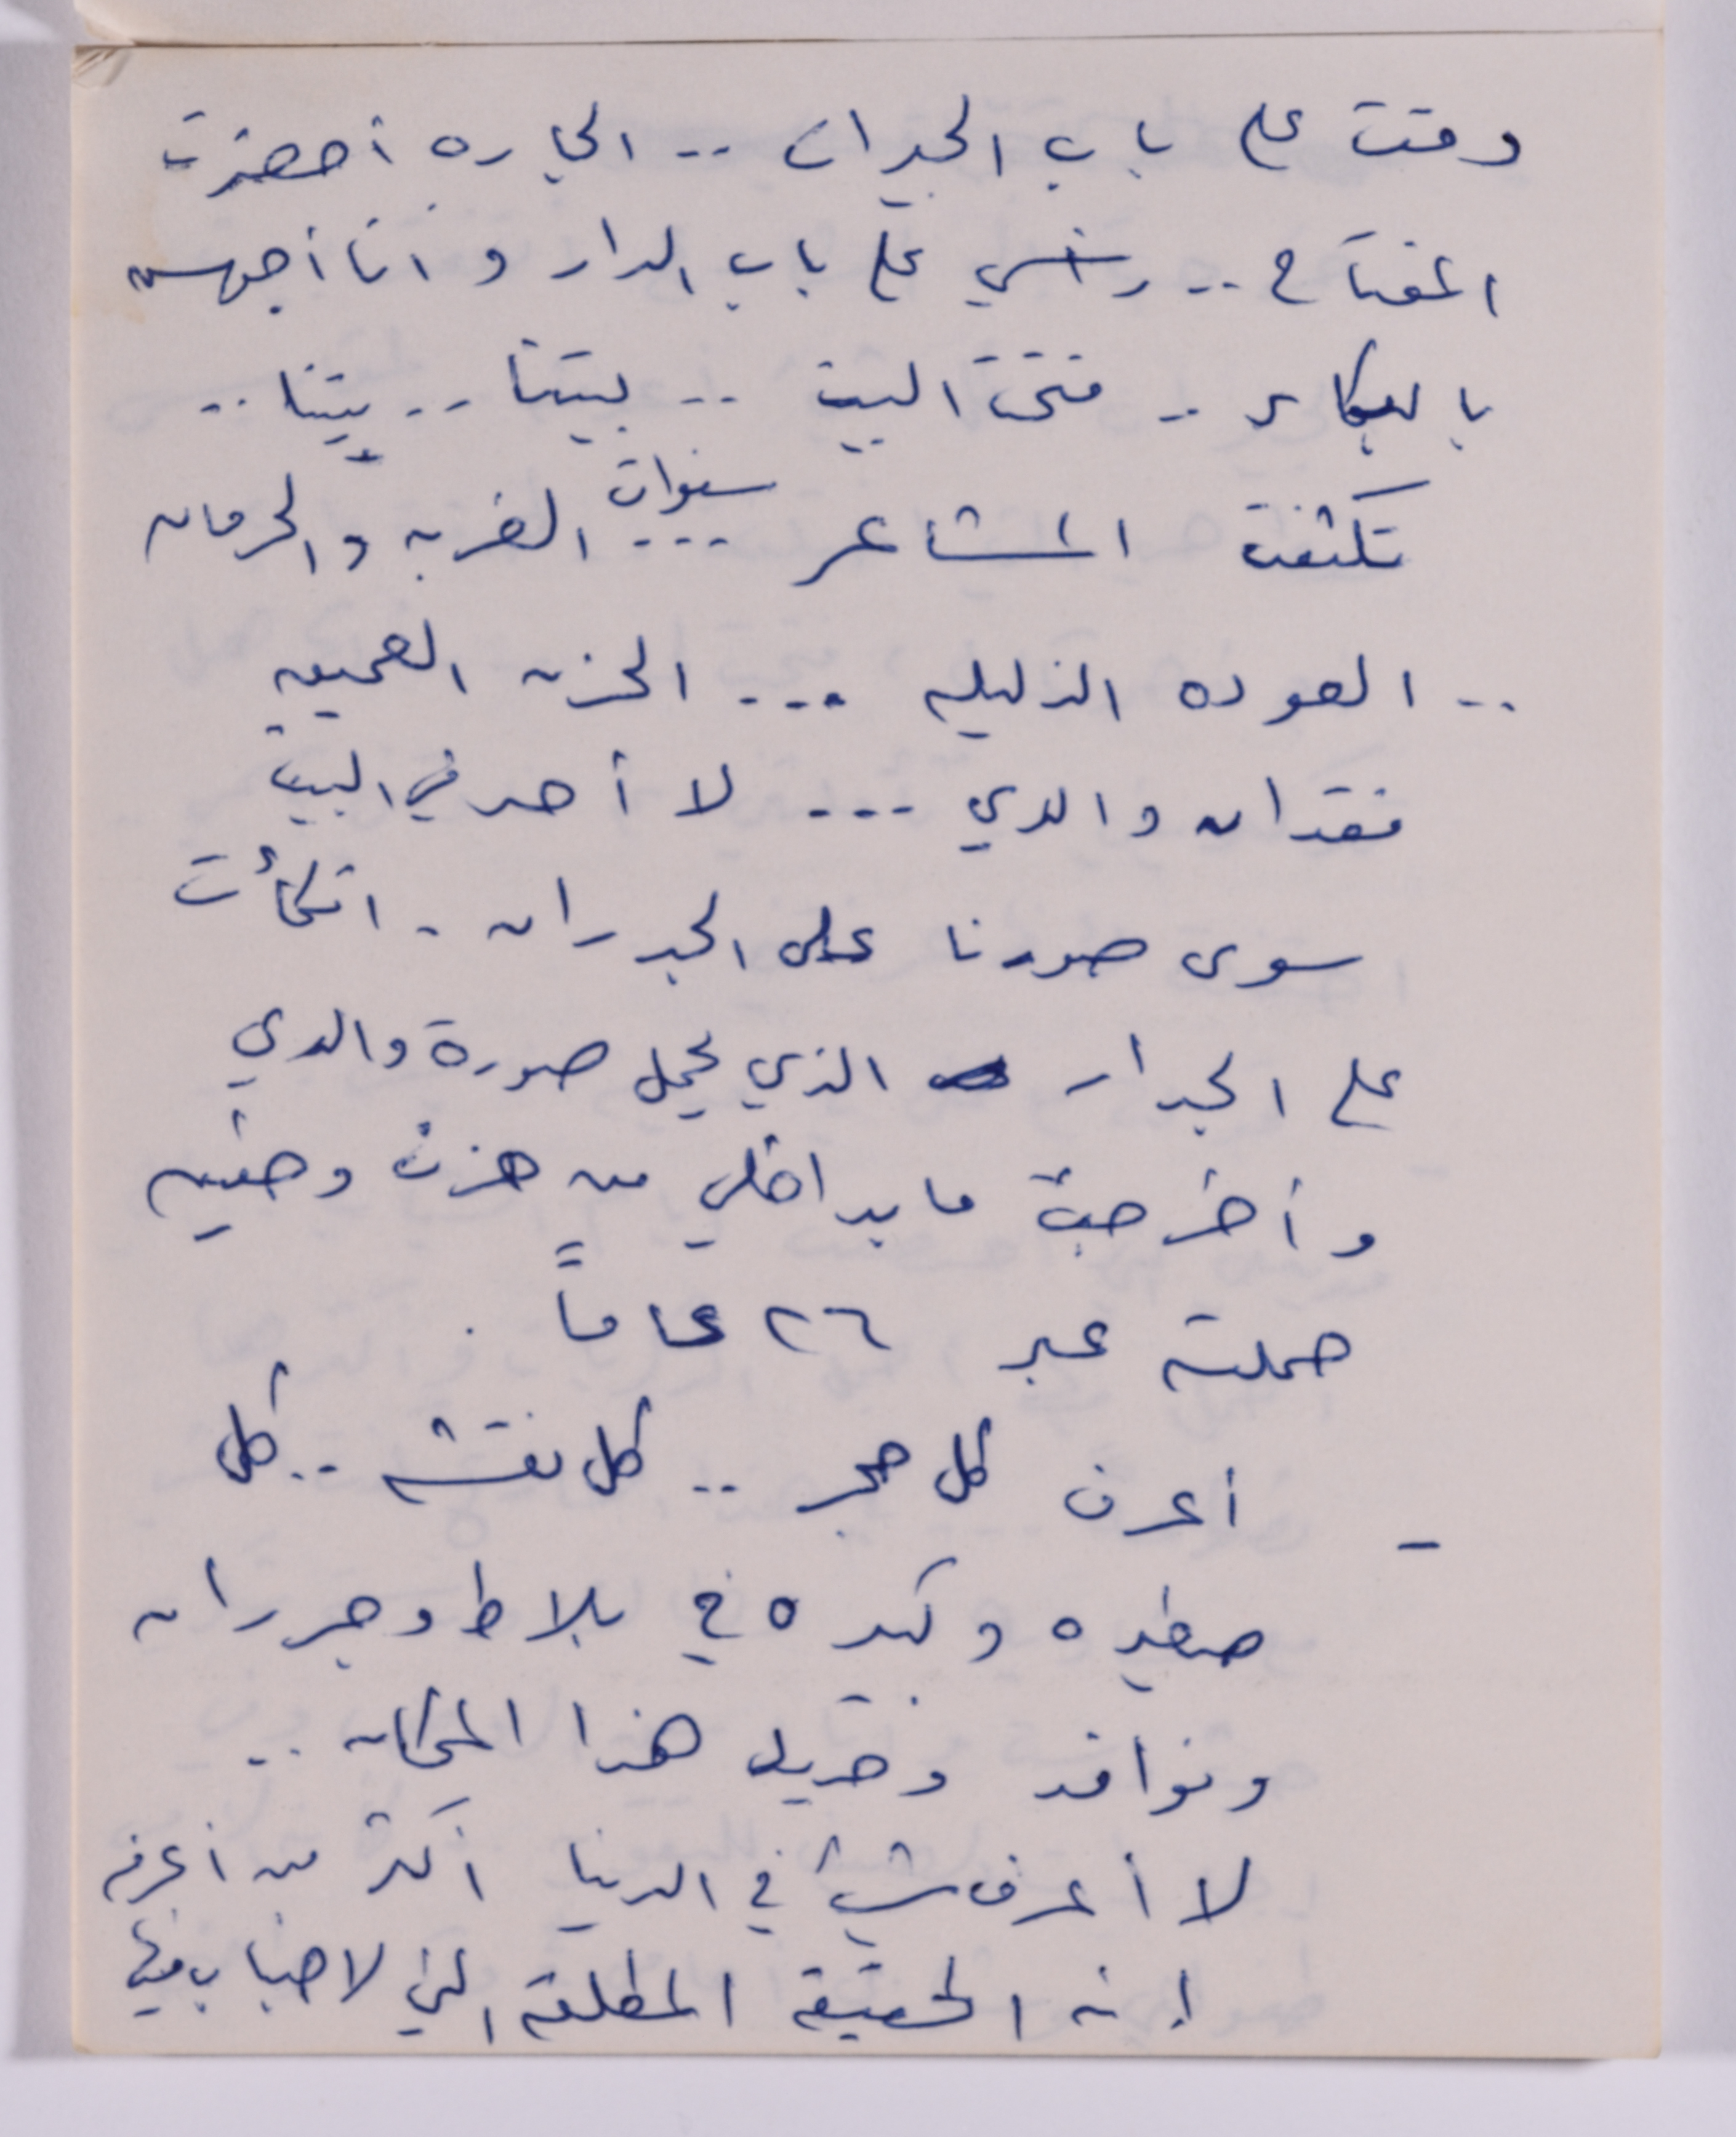 دقت على باب الجيران .. الجاره أحضرت
المفتاح .. رأسي على باب الدار وانا أجهش
بالبكاء .. فتحت البيت .. بيتنا .. بيتنا ..
تكثفت المشاعر ... سنوات الغربه والحرمان
.. العوده الذليله ... الحزن العميق
فقدان والدي ... لا أحد في البيت
سوى صورنا على الجدران . اتكأت
على الجدار الذي يحمل صورة والدي
وأخرجت ما بداخلي من حزن وحنين
حملته عبر ٢٦ عاماً .
- أعرف كل حجر .. كل نقشه .. كل
صغيره وكبيره في بلاط وجدران
ونوافذ وحديد هذا المكان ..
لا أعرف شيئ في الدنيا أكثر من أعرفه
إنه الحقيقة المطلقة التي لا ضباب فيها